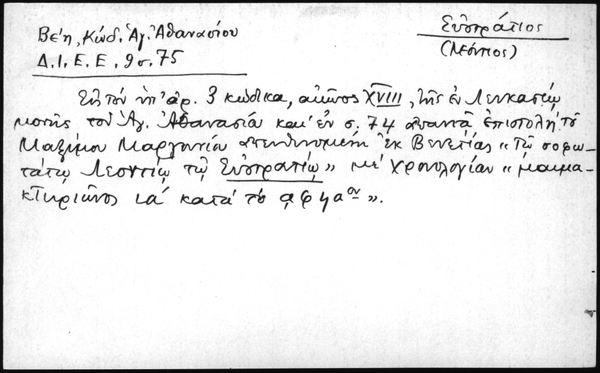 Βέη, Κώδ. Ἁγ. Ἀθανασίου
Δ.Ι.Ε.Ε, 9 σ. 75
Εὐστράτιος
(Λεόντιος)
Εἰς τὸν ὑπ' ἀρ. 3 κώδικα, αἰῶνος XVIII, τῆς ἐν Λευκασίῳ
μονῆς τοῦ Ἁγ. Ἀθανασίου καὶ ἐν σ. 74 ἀπαντᾶ ἐπιστολὴ τοῦ
Μαξίμου Μαργουνίου ἀπευθυνομένη ἐκ Βενετίας «Τῷ σοφω-
τάτῳ Λεοντίῳ τῷ Εὐστρατίῳ» μὲ χρονολογίαν «μαιμα-
κτηριῶνος ια΄ κατὰ τὸ αφηαον».